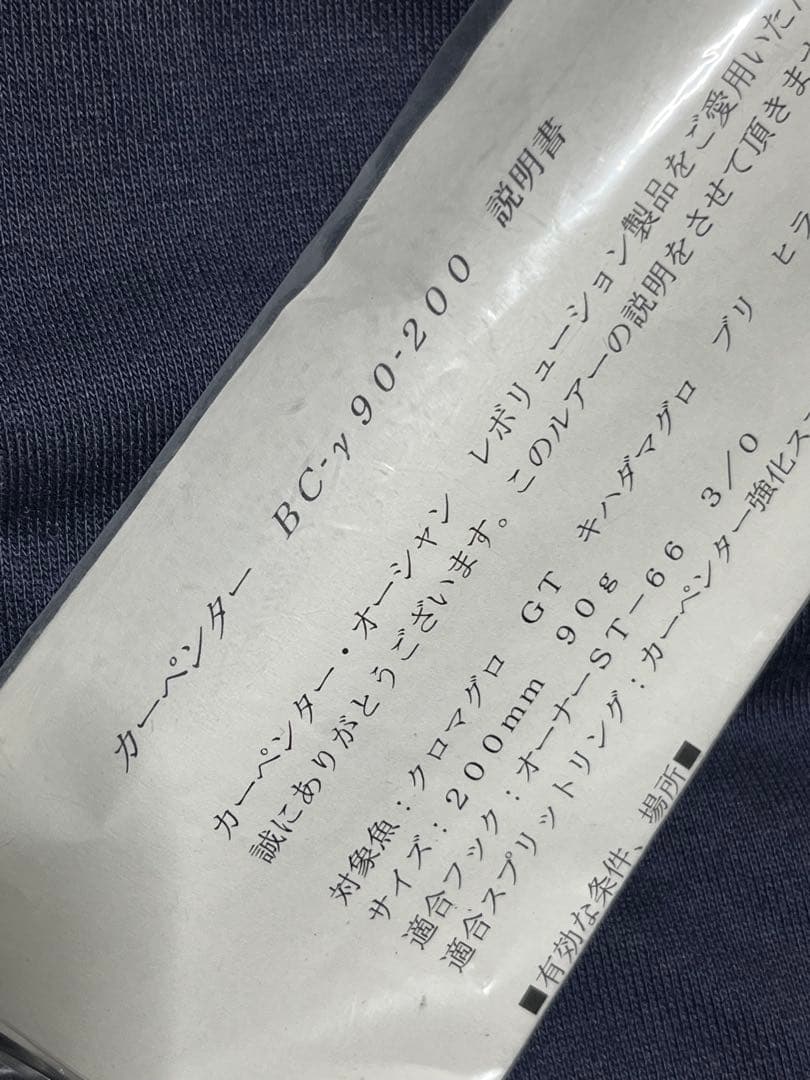 カーペンター　BC-γ90-200　説明書
カーペンター・オーシャン　レボリューション製品をご愛用いた
誠にありがとうございます。このルアーの説明をさせて頂きま
対象魚：クロマグロ　GT　キハダマグロ　ブリ　ヒラ
サイズ：200mm　90g
適合フック：オーナーST－66　3／0
適合スプリットリング：カーペンター強化ス
■有効な条件、場所■